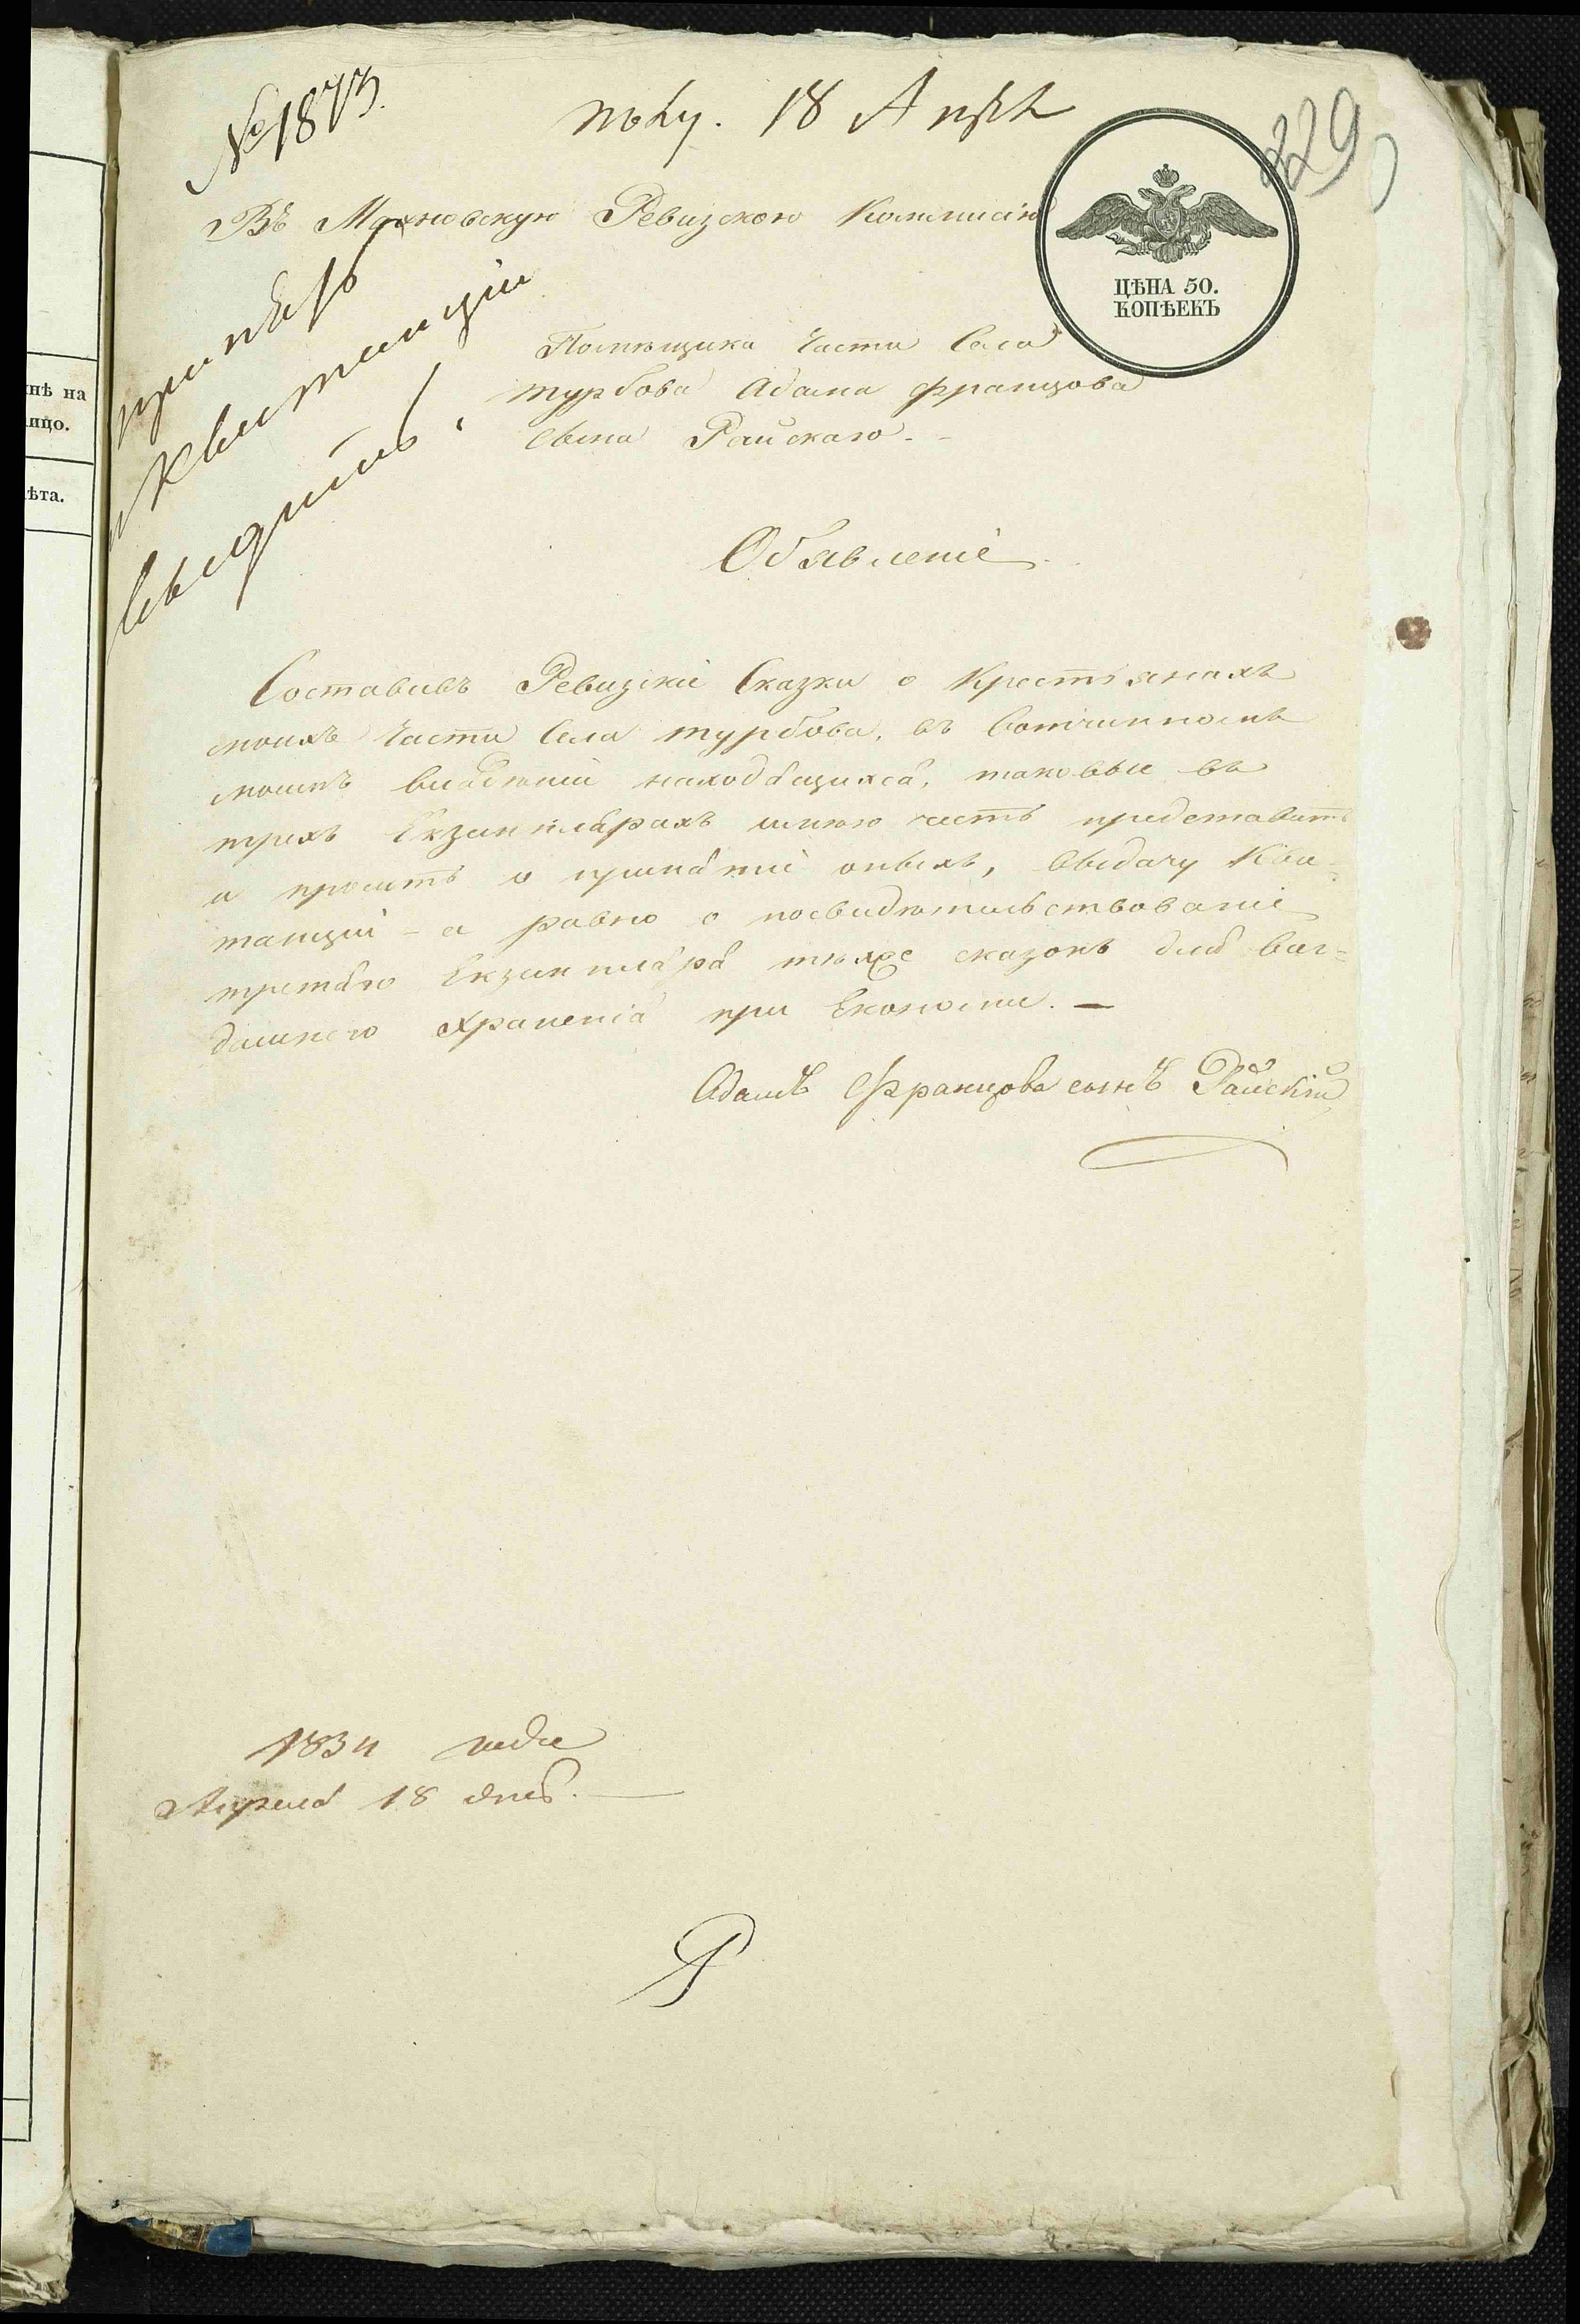 № 1873.
полу. 18 Апрѣл
229
Въ Махновскую Ревизскою Коммисію
ЦѢНА 50.
КОПѢЕКЪ
принять
и квитанціи
выдать
Помѣщика части Села
турбова Адама францова
Сына Райскаго. -
Объявленіе.
Составивъ Ревизскіе Сказки о Крестьянахъ
моихъ части Села турбова, въ вотчинномъ
моемъ владѣніи находящихся, таковые въ
трехъ Екземплярахъ имѣю честь представить
и просить о принятіе оныхъ, выдачу Кви-
танціи - а равно о посвидѣтельствованіе
третяго Екземпляра тѣхже сказокъ для
дашнего Храненія при Економіи. —
Адамъ Францова сынъ Райскій
1834 года
Апреля 18 дня. —
нѣ на
лицо.
ѣта.